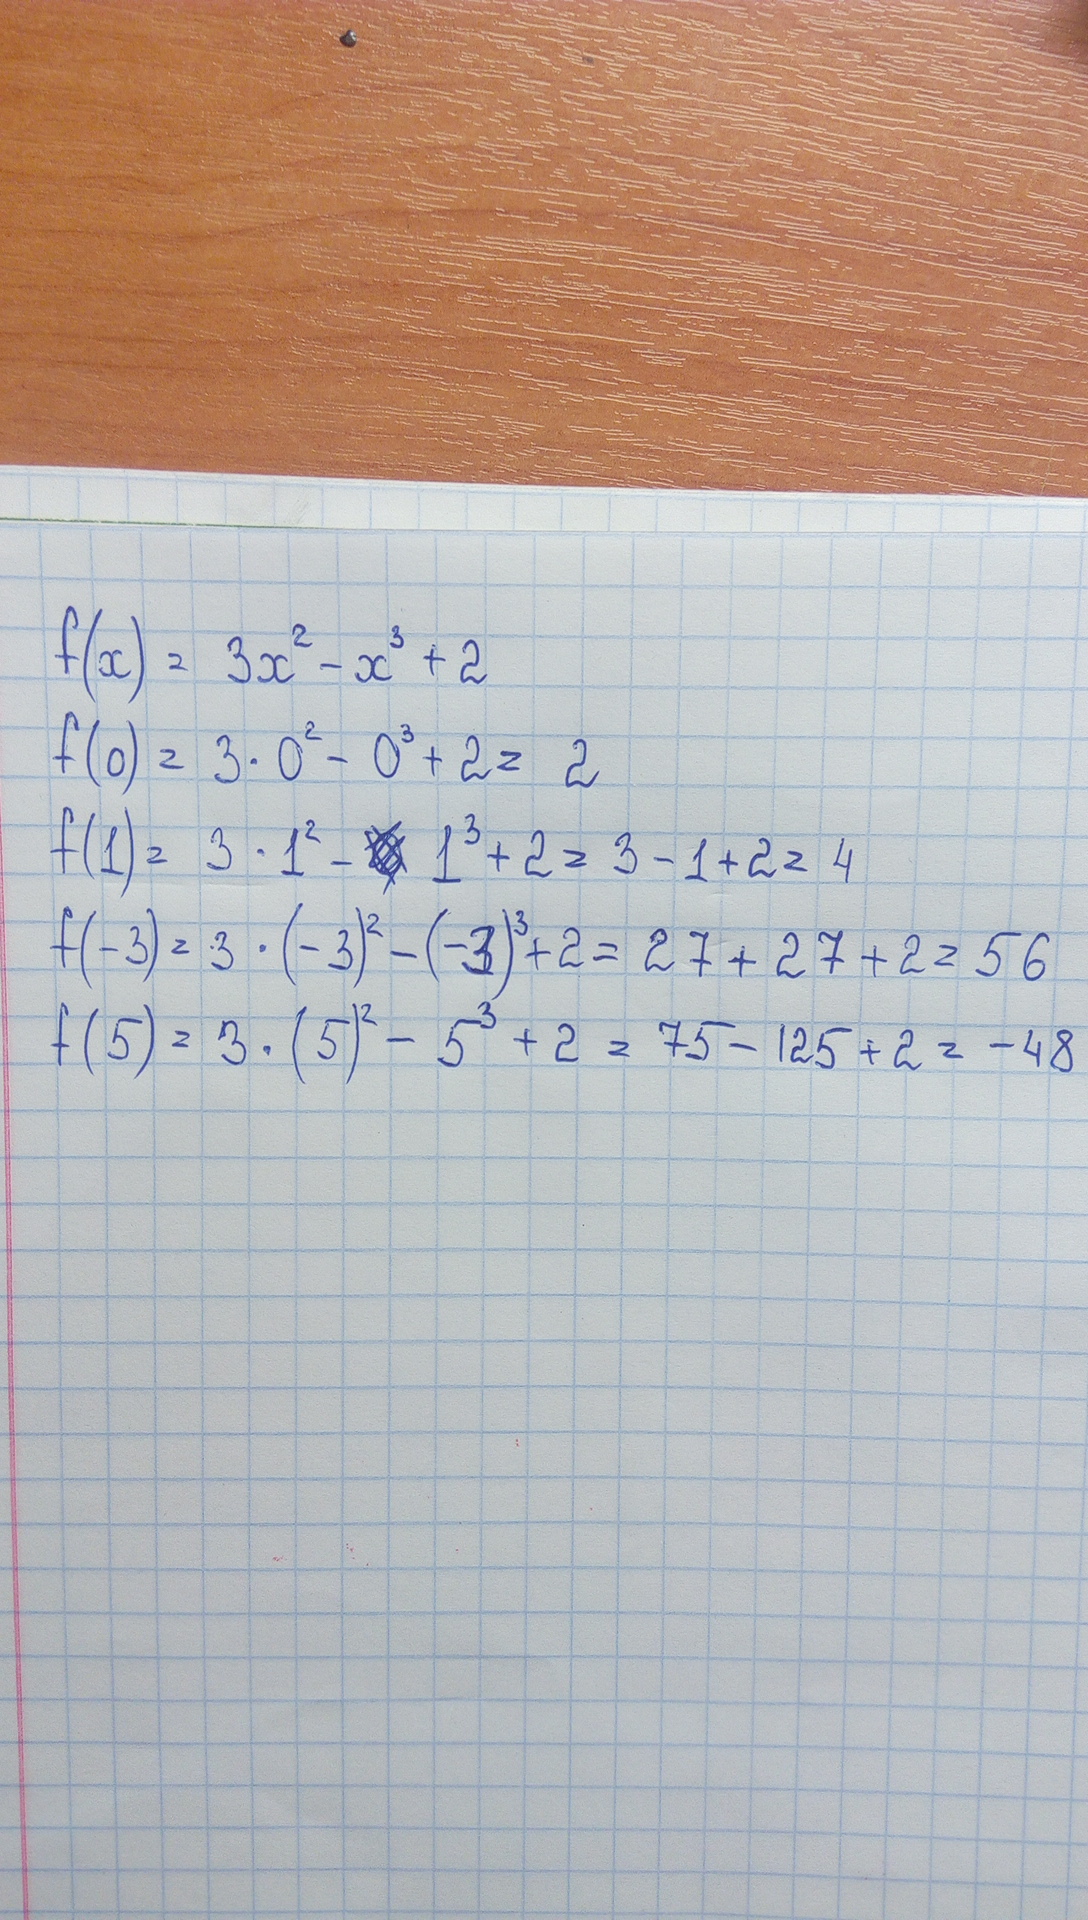 f(x) = 3x² - x³ + 2
f(0) = 3 · 0² - 0³ + 2 = 2
f(1) = 3 · 1² - 1³ + 2 = 3 - 1 + 2 = 4
f(-3) = 3 · (-3)² - (-3)³ + 2 = 27 + 27 + 2 = 56
f(5) = 3 · (5)² - 5³ + 2 = 75 - 125 + 2 = -48